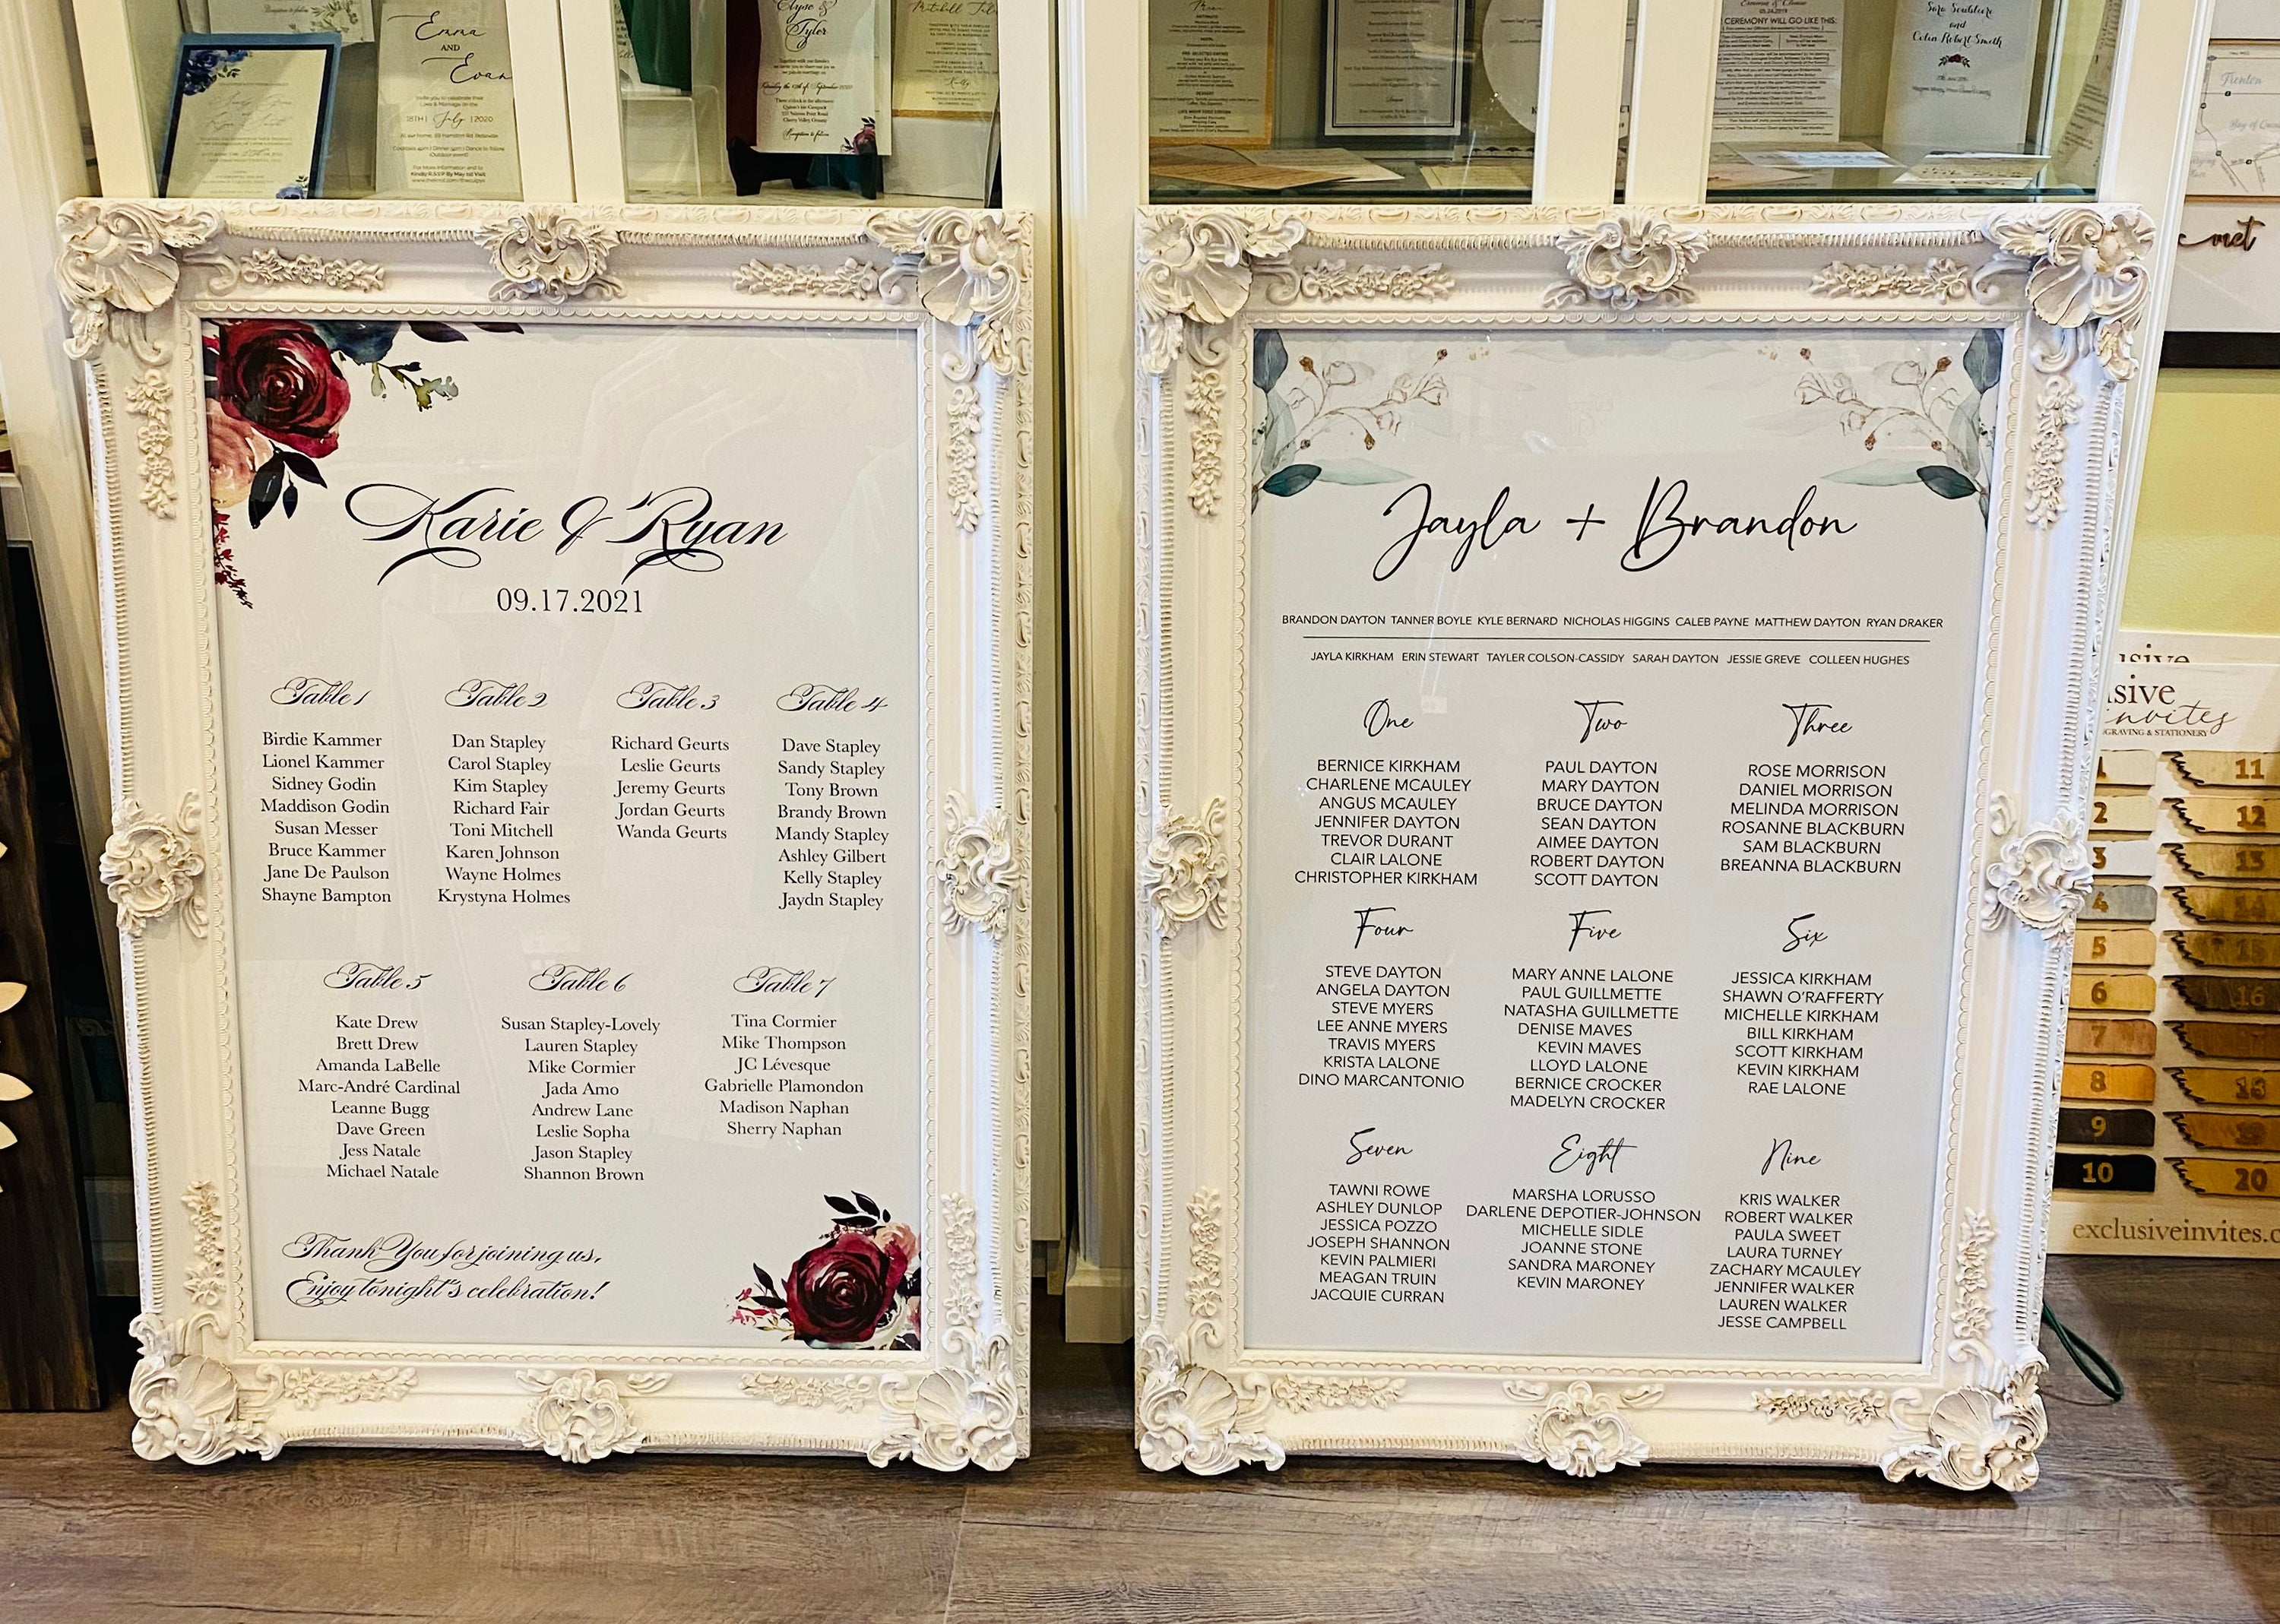 Emma
AND
Evan
Invite you to celebrate their
18TH | July | 2020
Kindly R.S.V.P By May 1st Visit
Elyse &
Tyler
Reception to follow
CEREMONY WILL GO LIKE THIS:
and
Colin Robert Smith
Trenton
Karie & Ryan
09.17.2021
Table 1
Birdie Kammer
Lionel Kammer
Sidney Godin
Maddison Godin
Susan Messer
Bruce Kammer
Jane De Paulson
Shayne Bampton
Table 2
Dan Stapley
Carol Stapley
Kim Stapley
Richard Fair
Toni Mitchell
Karen Johnson
Wayne Holmes
Krystyna Holmes
Table 3
Richard Geurts
Leslie Geurts
Jeremy Geurts
Jordan Geurts
Wanda Geurts
Table 4
Dave Stapley
Sandy Stapley
Tony Brown
Brandy Brown
Mandy Stapley
Ashley Gilbert
Kelly Stapley
Jaydn Stapley
Table 5
Kate Drew
Brett Drew
Amanda LaBelle
Marc-André Cardinal
Leanne Bugg
Dave Green
Jess Natale
Michael Natale
Table 6
Susan Stapley-Lovely
Lauren Stapley
Mike Cormier
Jada Amo
Andrew Lane
Leslie Sopha
Jason Stapley
Shannon Brown
Table 7
Tina Cormier
Mike Thompson
JC Lévesque
Gabrielle Plamondon
Madison Naphan
Sherry Naphan
Thank You for joining us,
Enjoy tonight's celebration!
Jayla + Brandon
BRANDON DAYTON TANNER BOYLE KYLE BERNARD NICHOLAS HIGGINS CALEB PAYNE MATTHEW DAYTON RYAN DRAKER
JAYLA KIRKHAM ERIN STEWART TAYLER COLSON-CASSIDY SARAH DAYTON JESSIE GREVE COLLEEN HUGHES
One
BERNICE KIRKHAM
CHARLENE MCAULEY
ANGUS MCAULEY
JENNIFER DAYTON
TREVOR DURANT
CLAIR LALONE
CHRISTOPHER KIRKHAM
Two
PAUL DAYTON
MARY DAYTON
BRUCE DAYTON
SEAN DAYTON
AIMEE DAYTON
ROBERT DAYTON
SCOTT DAYTON
Three
ROSE MORRISON
DANIEL MORRISON
MELINDA MORRISON
ROSANNE BLACKBURN
SAM BLACKBURN
BREANNA BLACKBURN
Four
STEVE DAYTON
ANGELA DAYTON
STEVE MYERS
LEE ANNE MYERS
TRAVIS MYERS
KRISTA LALONE
DINO MARCANTONIO
Five
MARY ANNE LALONE
PAUL GUILLMETTE
NATASHA GUILLMETTE
DENISE MAVES
KEVIN MAVES
LLOYD LALONE
BERNICE CROCKER
MADELYN CROCKER
Six
JESSICA KIRKHAM
SHAWN O'RAFFERTY
MICHELLE KIRKHAM
BILL KIRKHAM
SCOTT KIRKHAM
KEVIN KIRKHAM
RAE LALONE
Seven
TAWNI ROWE
ASHLEY DUNLOP
JESSICA POZZO
JOSEPH SHANNON
KEVIN PALMIERI
MEAGAN TRUIN
JACQUIE CURRAN
Eight
MARSHA LORUSSO
DARLENE DEPOTIER-JOHNSON
MICHELLE SIDLE
JOANNE STONE
SANDRA MARONEY
KEVIN MARONEY
Nine
KRIS WALKER
ROBERT WALKER
PAULA SWEET
LAURA TURNEY
ZACHARY MCAULEY
JENNIFER WALKER
LAUREN WALKER
JESSE CAMPBELL
usive
sive
invites
GRAVING & STATIONERY
1 11
2 12
3 13
4 14
5 15
6 16
7
8 18
9 19
10 20
exclusiveinvites.c